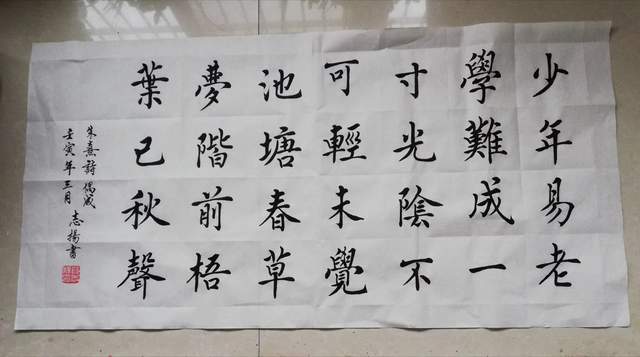 少年易老
學難成一
寸光陰不
可輕未覺
池塘春草
夢階前梧
葉已秋聲
朱熹詩偶成
壬寅年三月志揚書